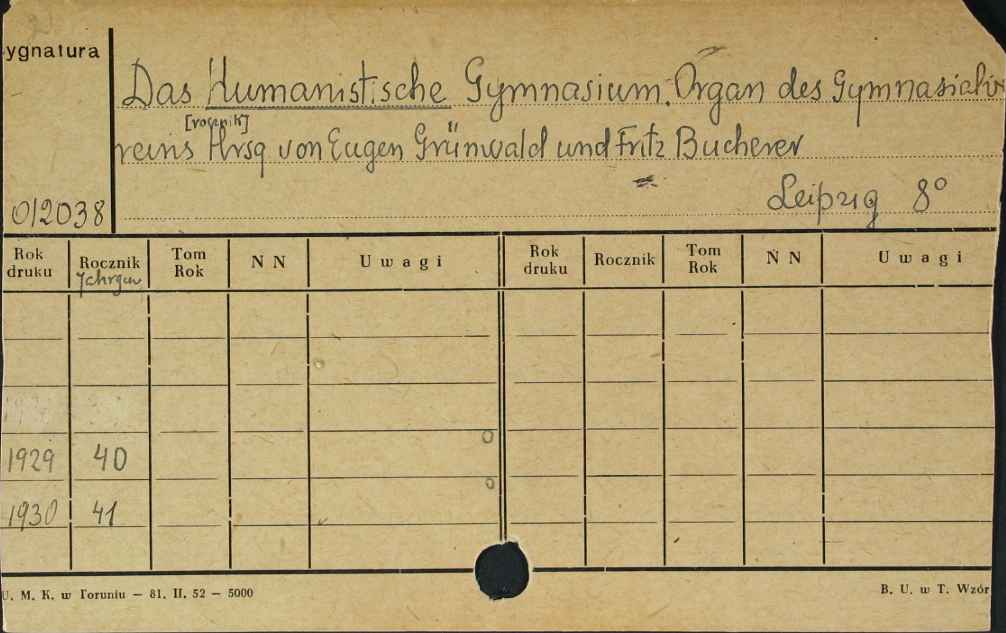 ygnatura
Das Humanistische Gymnasium. Organ des Gymnasialve
[rocznik]
reins Hrsg von Eugen Grünwald und Fritz Bucherer
Leipzig 8°
012038
Rok druku Rocznik Tom Rok N N Uwagi Rok druku Rocznik Tom Rok N N Uwagi
Jahrgan
1929 40
1930 41
U. M. K. w Toruniu — 81. II. 52 — 5000
B. U. w T. Wzór